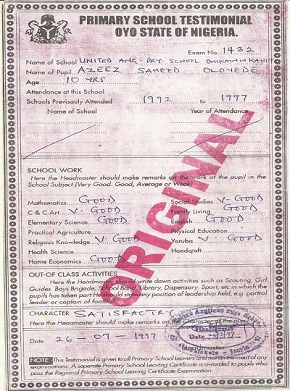 PRIMARY SCHOOL TESTIMONIAL
OYO STATE OF NIGERIA.
Exam No 1432
Name of School UNITED ANG. DAY SCHOOL
Name of Pupil AZEEZ SAHEED OLOYEDE
Age 10 YRS
Attendance at this School
Schools Previously Attended 1992 to 1997
Name of School Year of Attendance
ORIGINAL
SCHOOL WORK
Here the Headmaster should make remarks on the work of the pupil in the
School Subject (Very Good. Good, Average or Weak)
Mathematics GOOD Social Studies V. GOOD
C & C Art V. GOOD Family Living GOOD
Elementary Science GOOD English GOOD
Practical Agriculture Physical Education
Religious Knowledge V. GOOD Yoruba V. GOOD
Health Science GOOD Handcraft
Home Economics GOOD
OUT-OF CLASS ACTIVITIES
Here the Headmaster should write down activities such as Scouting, Girl
Guides, Boys Brigade, School Band, Library, Dispensary, Sport, etc. in which the
pupils has taken part. He should note any position of leadership field, e.g.
leader or captain of
CHARACTER SATISFACTRY
Here the Headmaster should make remarks on the
Date 26-07-1997
Headmaster
NOTE This Testimonial is given to all Primary School Leavers and
requirements. A separate Primary School Leaving Certificate is awarded to pupils who
pass the Regional Primary School Leaving Certificate Examination.